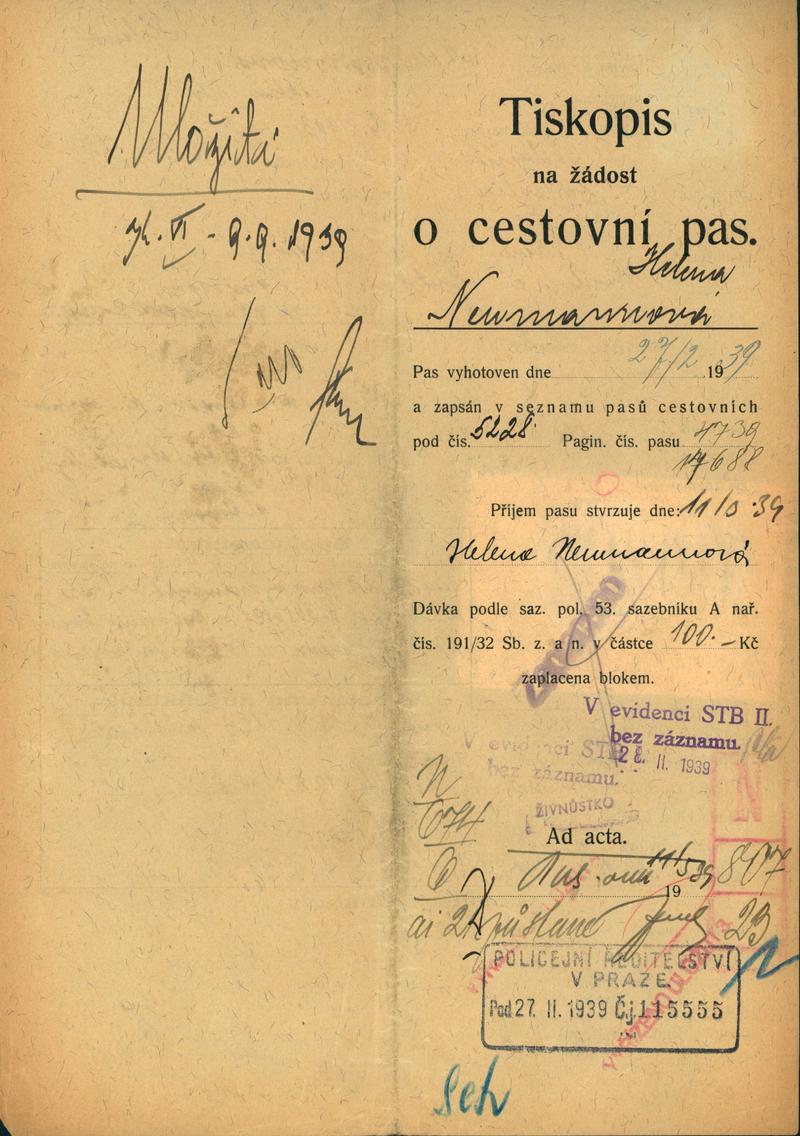 Uložiti
VI - 9.9. 1939
Tiskopis
na žádost
o cestovní pas.
Helena
Neumannová
Pas vyhotoven dne 27/2 1939
a zapsán v seznamu pasů cestovních
pod čís. 5228 Pagin. čís. pasu 4739
17688
Příjem pasu stvrzuje dne: 11/3 39
Helena Neumannová
Dávka podle saz. pol. 53. sazebníku A nař.
čís. 191/32 Sb. z. a n. v částce 100.- Kč
zaplacena blokem.
V evidenci STB II.
bez záznamu.
V evidenci STB
bez záznamu.
II. 1939
ŽIVNOSTKO
N
674
Ad acta.
11/3 1939
807
23
POLICEJNÍ ŘEDITELSTVÍ
V PRAZE.
Pod 27. II. 1939 Čj. 115555